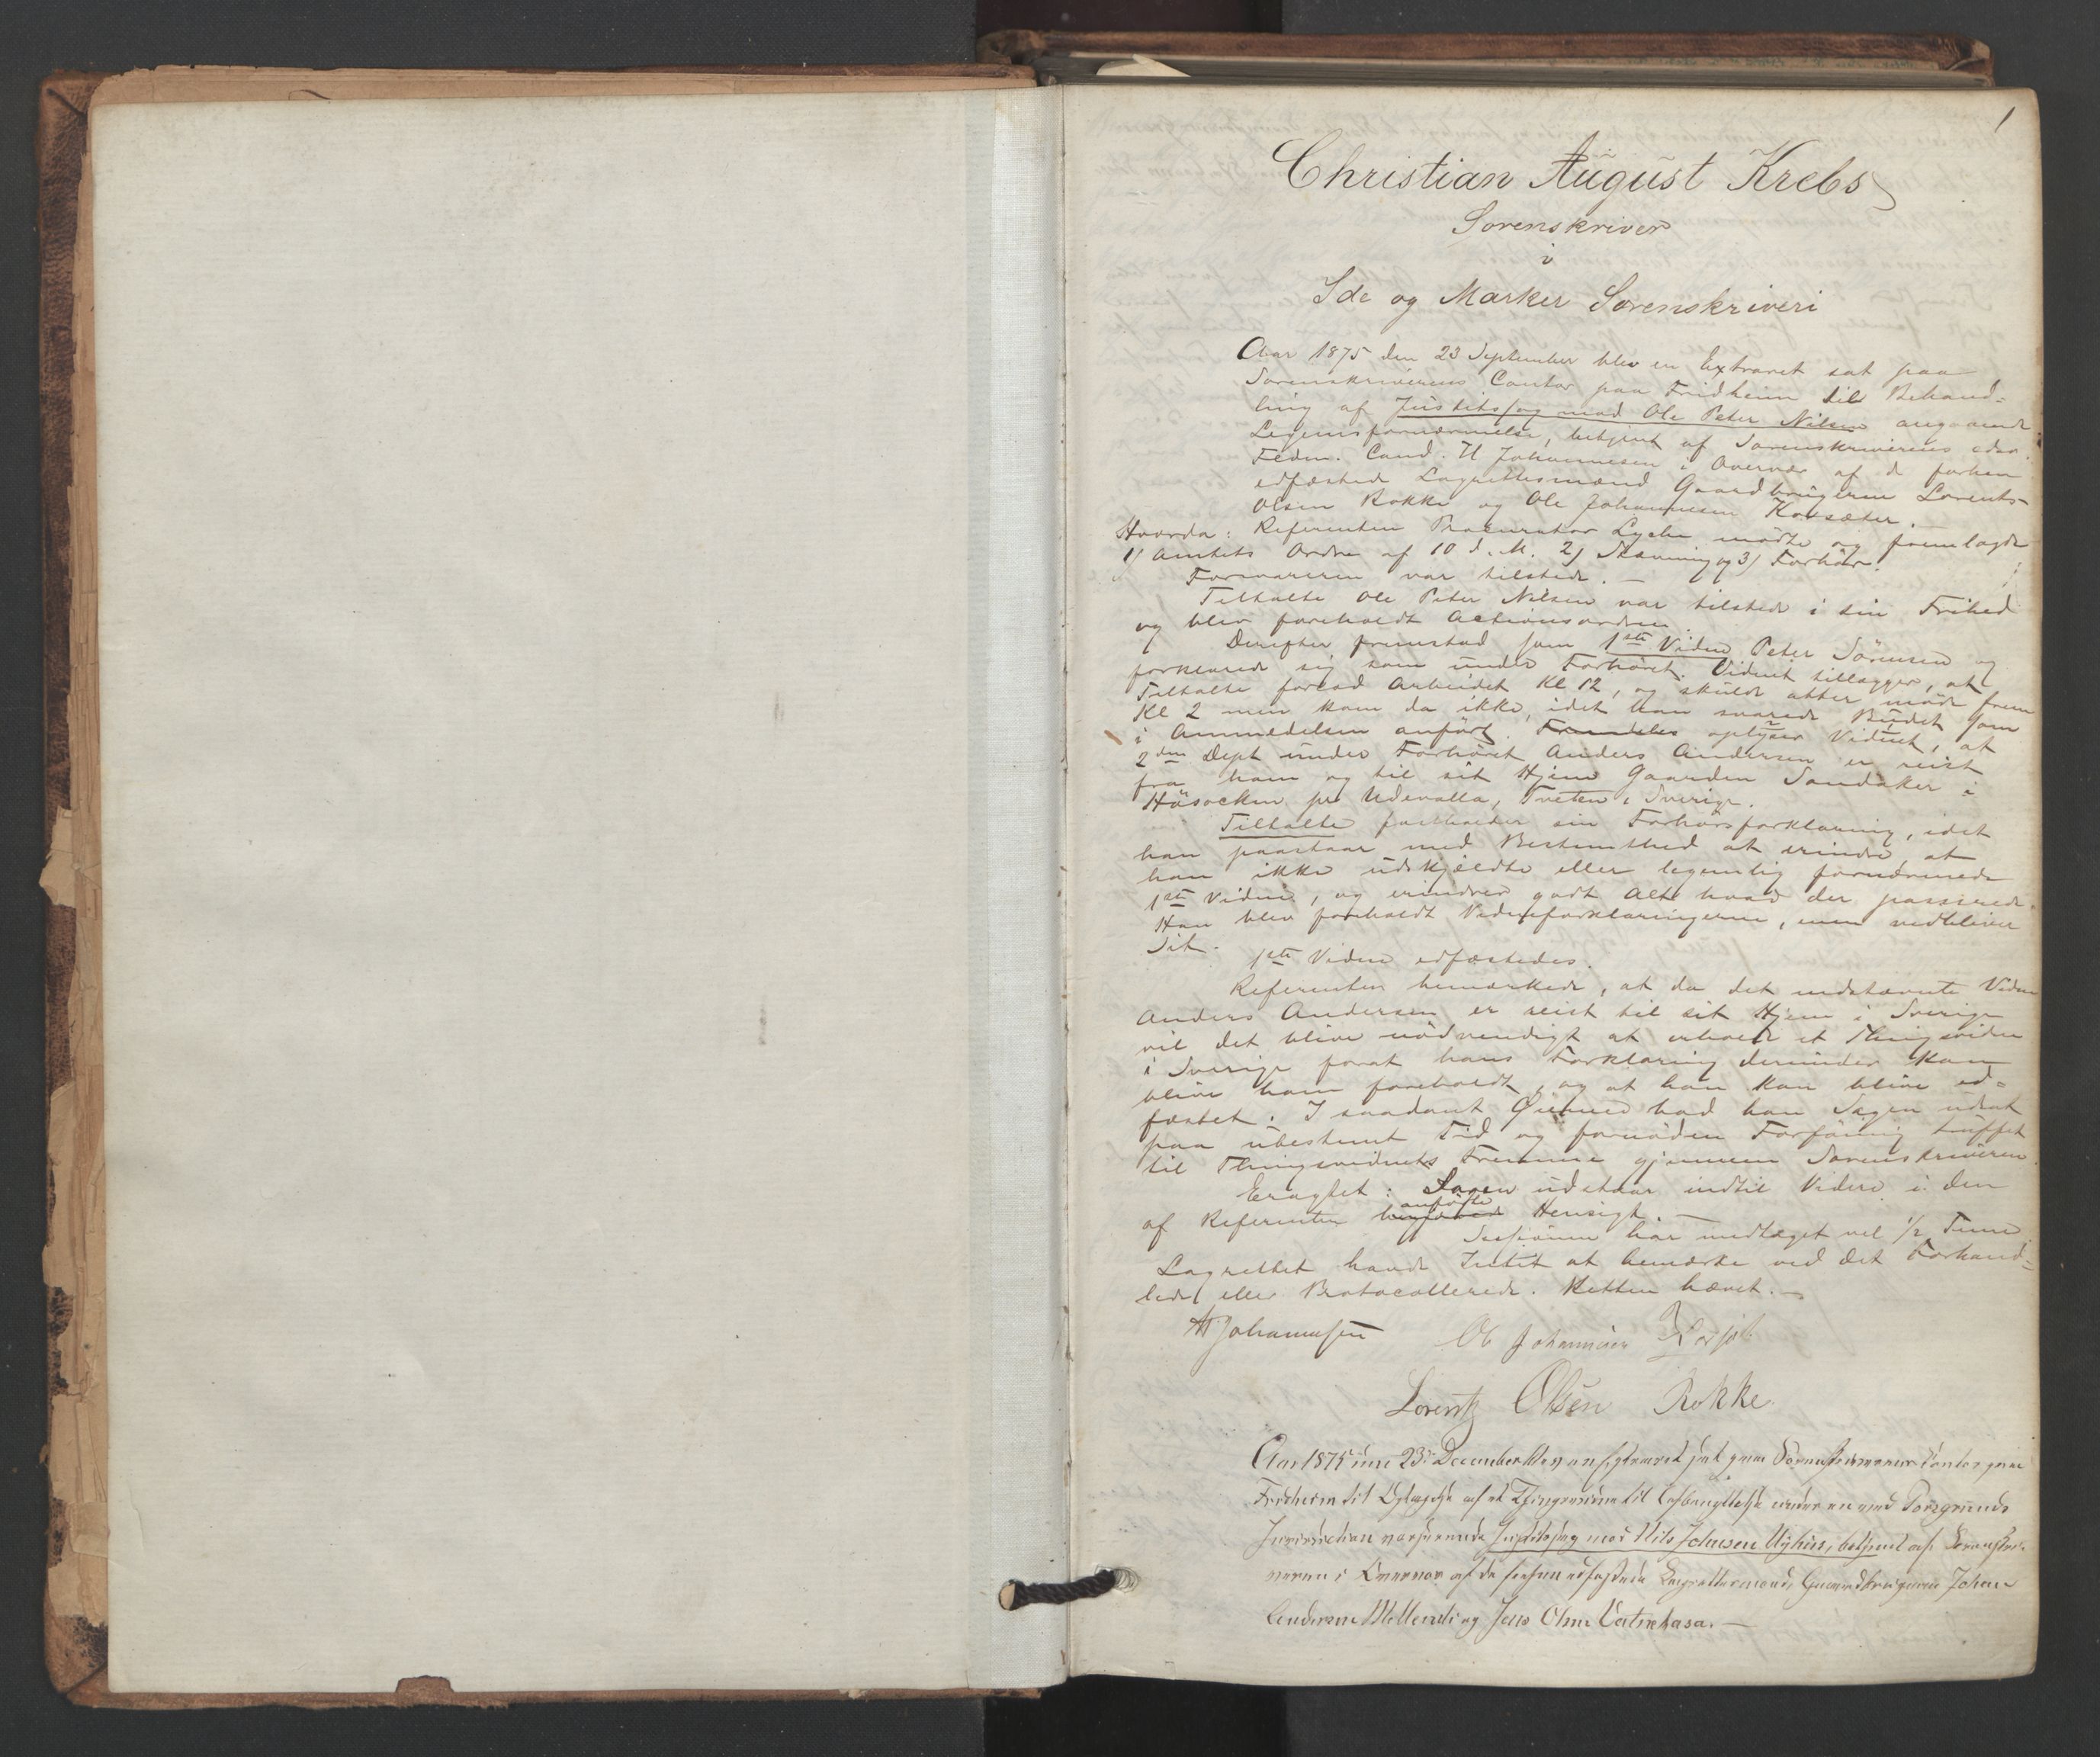 1
Christian August Krebs
Sorenskriver
i
Ide og Marker Sorenskriveri
Aar 1875 den 23 September blev en Extraret sat paa
Sorenskriverens Contor paa Fridheim til Behand-
ling af Justitssag mod Ole Peter Nilsen angaaende
Legemsfornærmelse, betjent af Sorenskriverens edsv.
Fuldm. Cand. H Johannesen i Overvær af de forhen
edfæstede Lagrettesmænd Gaardbrugerne Lorents
Olsen Rokke og Ole Johannesen Korsæter.
Hvorda: Referenten Procurator Lyche mødte og fremlagde
1) Amtets Ordre af 10 d. M. 2) Stævning og 3) Forhør.
Forsvareren var tilstede. —
Tiltalte Ole Peter Nilsen var tilstede i sin Frihed
og blev foreholdt Actionsordren.
Derefter fremstod som 1ste Vidne Peter Sörensen og
forklarede sig som under Forhöret. Vidnet tillægger, at
Tiltalte forlod Arbeidet Kl 12, og skulde atter møde frem
Kl 2 men kom da ikke, idet han svarede Budet som
i Anmeldelsen anført. Fremdeles oplyser Vidnet, at
2den Dept under Forhöret Anders Andersen er reist
fra ham og til sit Hjem Gaarden Sandaker i
Håsocken pr Udevalla, Tveten i Sverige.
Tiltalte fastholder sin Forhörsforklaring, idet
han paastaar med Bestemthed at erindre, at
han ikke udskjeldte eller legemlig fornærmede
1ste Vidne, og erindrer godt Alt hvad der passerede.
Han blev foreholdt Vidneforklaringerne, men vedbliver
Sit.
1ste Vidne edfæstedes.
Referenten bemærkede, at da det indstævnte Vidne
Anders Andersen er reist til sit Hjem i Sverige
vil det blive nødvendigt at erholde et Thingsvidne
i Sverige forat hans Forklaring derunder kan
blive ham foreholdt, og at han kan blive ed-
fæstet. I saadant Øiemed bad han Sagen udsat
paa ubestemt Tid og fornöden Forföining truffet
til Thingsvidnets Fremme gjennem Sorenskriveren.
Eragtet: Sagen udstaar indtil Videre i den
af Referenten anførte Hensigt. —
Sessionen har medtaget vel 1/2 Time.
Lagrettet havde Intet at bemærke ved det Forhand-
lede eller Protocollerede. Retten hævet. —
H Johannesen Ole Johannesen
Lorentz Olsen Rokke
Aar 1875 den 23de December blev en Extraret sat paa Sorenskriverens Contor paa
Fridheim til Optagelse af et Thingsvidne til Afbenyttelse under en ved Porsgrunds
Jurisdiction verserende Justitssag mod Nils Johnsen Nyhus, betjent af Sorenskri-
veren i Overvær af de forhen edfæstede Lagrettesmænd, Gaardbrugerne Johan
Andersen og Jens Olsen. —